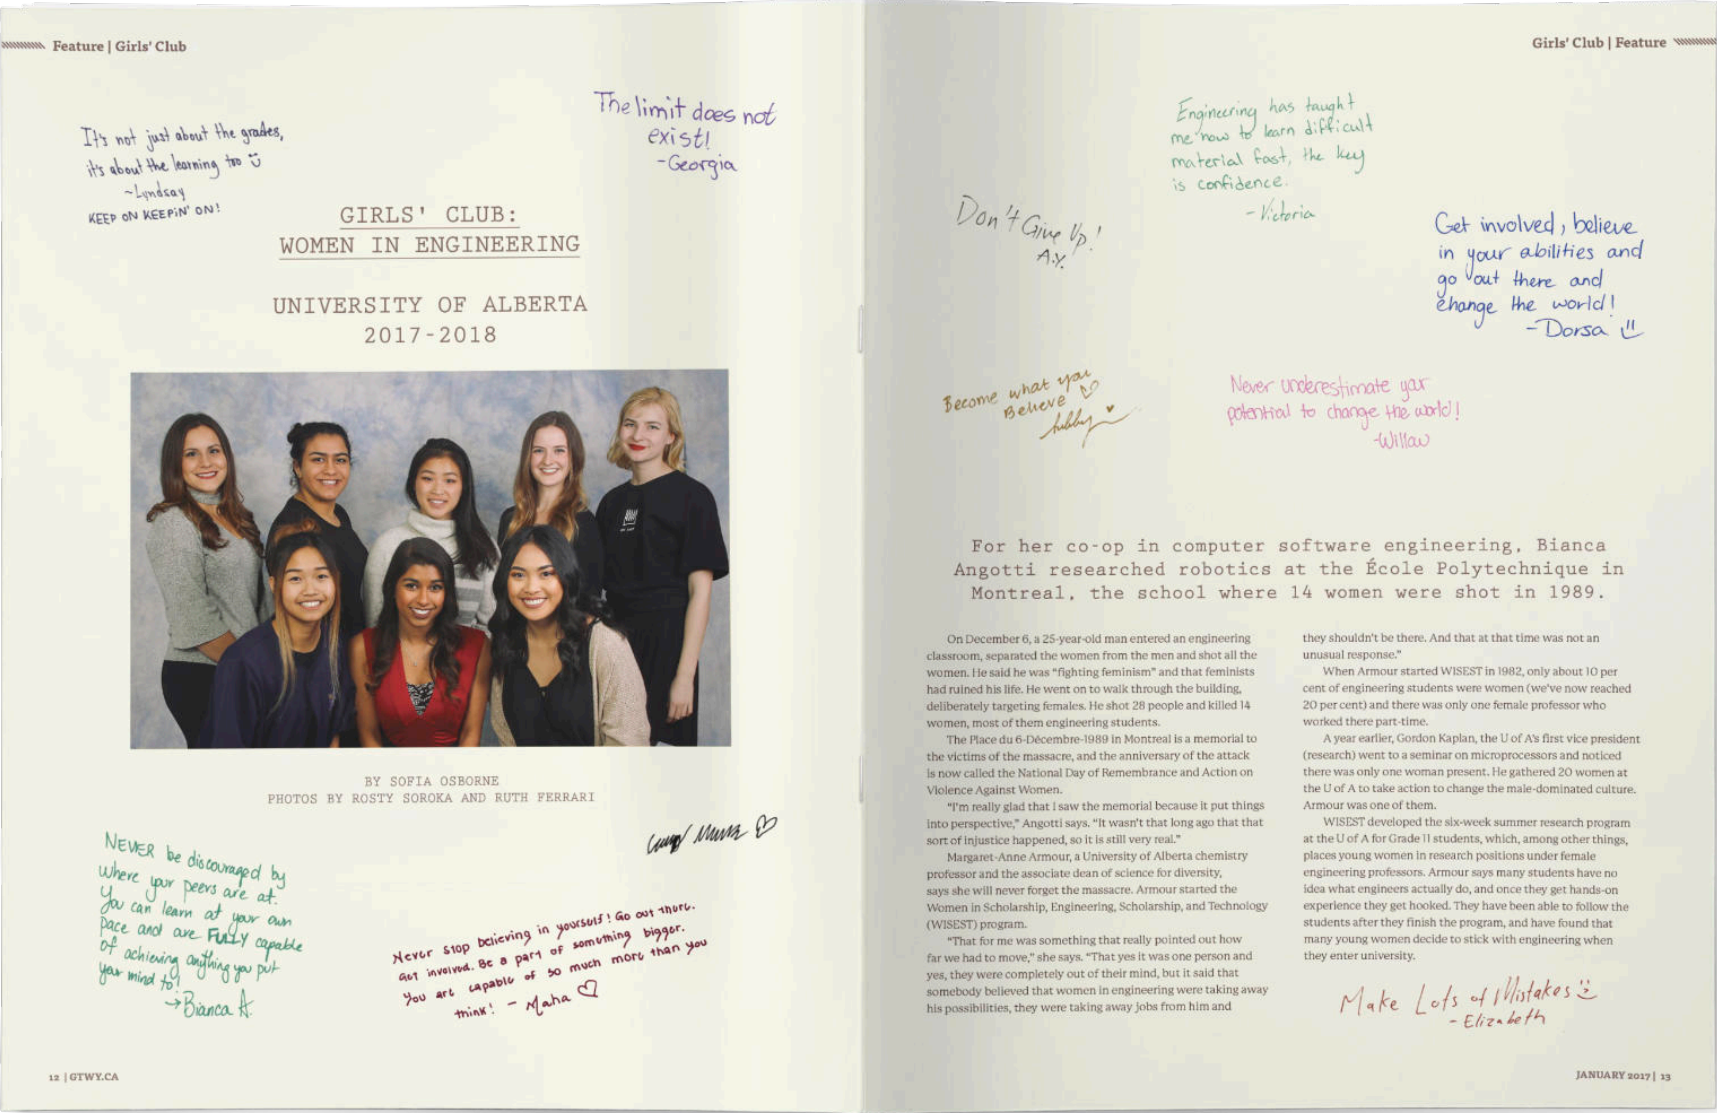 Feature | Girls' Club
It's not just about the grades,
it's about the learning too
~Lyndsay
KEEP ON KEEPiN' ON!
The limit does not
exist!
-Georgia
GIRLS' CLUB:
WOMEN IN ENGINEERING
UNIVERSITY OF ALBERTA
2017-2018
BY SOFIA OSBORNE
PHOTOS BY ROSTY SOROKA AND RUTH FERRARI
NEVER be discouraged by
where your peers are at.
You can learn at your own
pace and are FULLY capable
of achieving anything you put
your mind to!
→Bianca A.
Never stop believing in yourself! Go out there.
Get involved. Be a part of something bigger.
You are capable of so much more than you
think! - Maha ♡
12 | GTWY.CA
Girls' Club | Feature
Engineering has taught
me how to learn difficult
material fast, the key
is confidence.
- Victoria
Don't Give Up!
A.Y.
Get involved, believe
in your abilities and
go out there and
change the world!
-Dorsa
Become what you
Believe ♡
Never underestimate your
potential to change the world!
-Willow
For her co-op in computer software engineering, Bianca
Angotti researched robotics at the École Polytechnique in
Montreal, the school where 14 women were shot in 1989.
On December 6, a 25-year-old man entered an engineering
classroom, separated the women from the men and shot all the
women. He said he was "fighting feminism" and that feminists
had ruined his life. He went on to walk through the building,
deliberately targeting females. He shot 28 people and killed 14
women, most of them engineering students.
The Place du 6-Décembre-1989 in Montreal is a memorial to
the victims of the massacre, and the anniversary of the attack
is now called the National Day of Remembrance and Action on
Violence Against Women.
"I'm really glad that I saw the memorial because it put things
into perspective," Angotti says. "It wasn't that long ago that that
sort of injustice happened, so it is still very real."
Margaret-Anne Armour, a University of Alberta chemistry
professor and the associate dean of science for diversity,
says she will never forget the massacre. Armour started the
Women in Scholarship, Engineering, Scholarship, and Technology
(WISEST) program.
"That for me was something that really pointed out how
far we had to move," she says. "That yes it was one person and
yes, they were completely out of their mind, but it said that
somebody believed that women in engineering were taking away
his possibilities, they were taking away jobs from him and
they shouldn't be there. And that at that time was not an
unusual response."
When Armour started WISEST in 1982, only about 10 per
cent of engineering students were women (we've now reached
20 per cent) and there was only one female professor who
worked there part-time.
A year earlier, Gordon Kaplan, the U of A's first vice president
(research) went to a seminar on microprocessors and noticed
there was only one woman present. He gathered 20 women at
the U of A to take action to change the male-dominated culture.
Armour was one of them.
WISEST developed the six-week summer research program
at the U of A for Grade 11 students, which, among other things,
places young women in research positions under female
engineering professors. Armour says many students have no
idea what engineers actually do, and once they get hands-on
experience they get hooked. They have been able to follow the
students after they finish the program, and have found that
many young women decide to stick with engineering when
they enter university.
Make Lots of Mistakes
- Elizabeth
JANUARY 2017 | 13